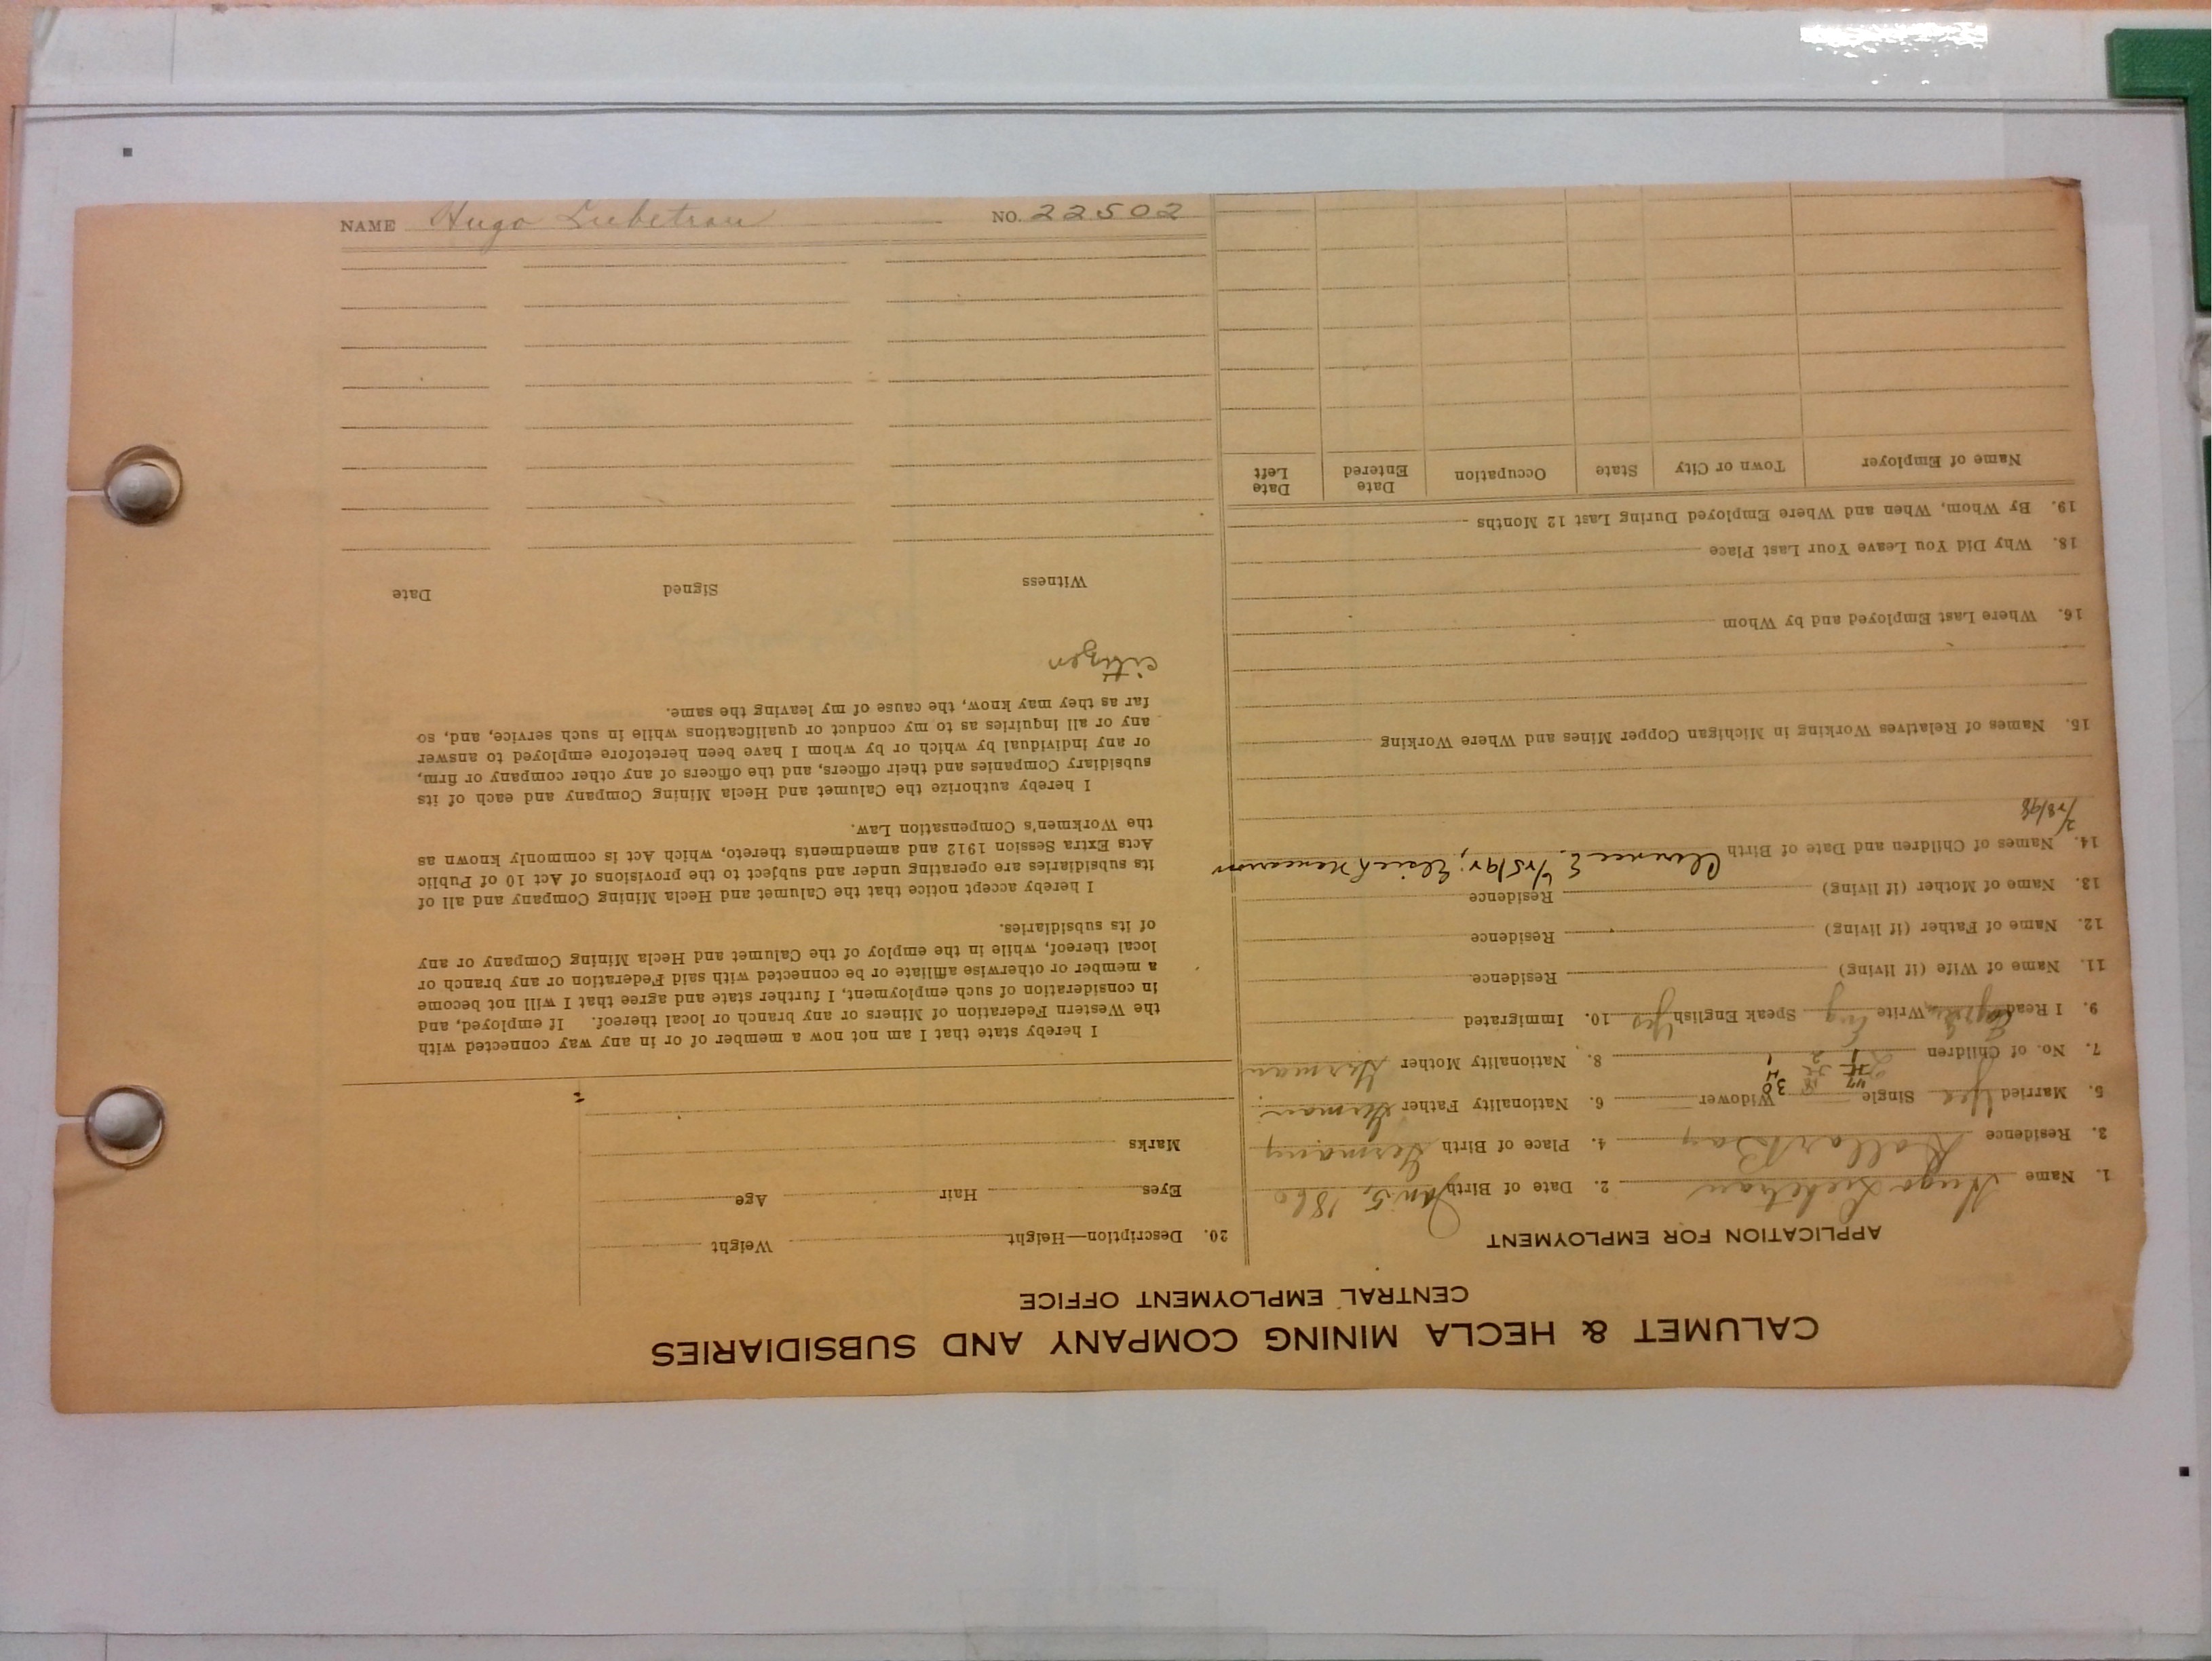 CALUMET & HECLA MINING COMPANY AND SUBSIDIARIES
CENTRAL EMPLOYMENT OFFICE
APPLICATION FOR EMPLOYMENT
1. Name Hugo Liebetrau 2. Date of Birth Jan 5, 1860
3. Residence Dollar Bay 4. Place of Birth Germany
5. Married Yes Single Widower 6. Nationality Father German
7. No. of Children 8. Nationality Mother German
9. I Read Write Eng Speak English Yes 10. Immigrated
11. Name of Wife (if living) Residence
12. Name of Father (if living) Residence
13. Name of Mother (if living) Residence
14. Names of Children and Date of Birth Clarence E.
15. Names of Relatives Working in Michigan Copper Mines and Where Working
16. Where Last Employed and by Whom
18. Why Did You Leave Your Last Place
19. By Whom, When and Where Employed During Last 12 Months
Name of Employer Town or City State Occupation Date Entered Date Left
20. Description—Height Weight
Eyes Hair Age
Marks
I hereby state that I am not now a member of or in any way connected with
the Western Federation of Miners or any branch or local thereof. If employed, and
in consideration of such employment, I further state and agree that I will not become
a member or otherwise affiliate or be connected with said Federation or any branch or
local thereof, while in the employ of the Calumet and Hecla Mining Company or any
of its subsidiaries.
I hereby accept notice that the Calumet and Hecla Mining Company and all of
its subsidiaries are operating under and subject to the provisions of Act 10 of Public
Acts Extra Session 1912 and amendments thereto, which Act is commonly known as
the Workmen's Compensation Law.
I hereby authorize the Calumet and Hecla Mining Company and each of its
subsidiary Companies and their officers, and the officers of any other company or firm,
or any individual by which or by whom I have been heretofore employed to answer
any or all inquiries as to my conduct or qualifications while in such service, and, so
far as they may know, the cause of my leaving the same.
citizen
Witness Signed Date
NAME Hugo Liebetrau NO. 22502